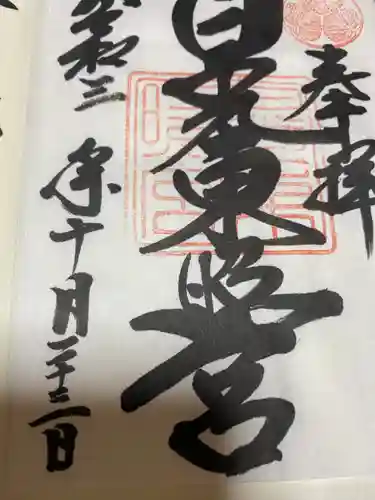 奉拝
日光東照宮
令和三年十月二十三日